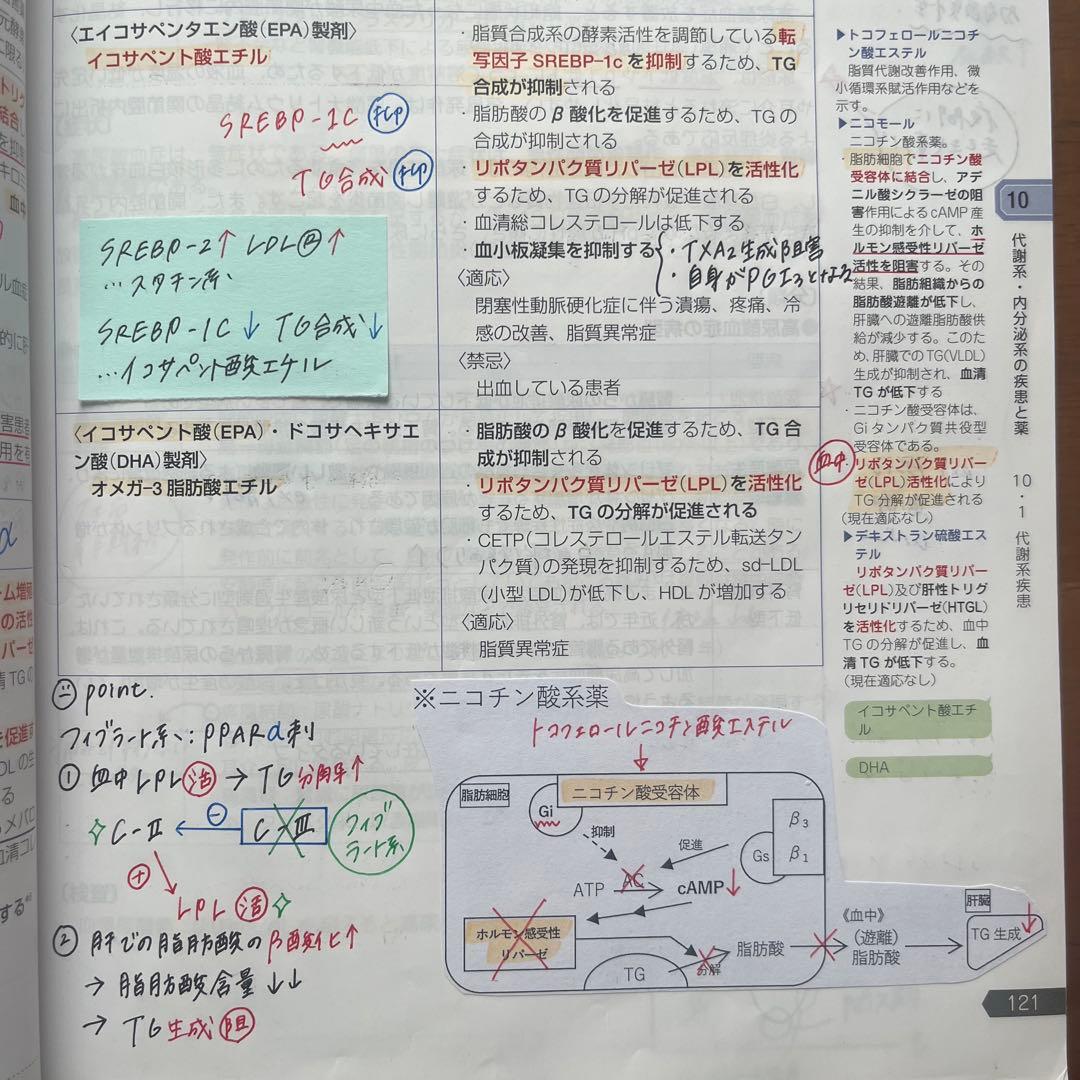 〈エイコサペンタエン酸(EPA)製剤〉
イコサペント酸エチル
SREBP-1C
TG合成
SREBP-2↑ LDL↑
…スタチン系
SREBP-1C↓ TG合成↓
…イコサペント酸エチル
・脂質合成系の酵素活性を調節している転
写因子SREBP-1cを抑制するため、TG
合成が抑制される
・脂肪酸のβ酸化を促進するため、TGの
合成が抑制される
・リポタンパク質リパーゼ(LPL)を活性化
するため、TGの分解が促進される
・血清総コレステロールは低下する
・血小板凝集を抑制する
・TXA2生成阻害
・自身がPGI3となる
〈適応〉
閉塞性動脈硬化症に伴う潰瘍、疼痛、冷
感の改善、脂質異常症
〈禁忌〉
出血している患者
〈イコサペント酸(EPA)・ドコサヘキサエ
ン酸(DHA)製剤〉
オメガ-3脂肪酸エチル
・脂肪酸のβ酸化を促進するため、TG合
成が抑制される
・リポタンパク質リパーゼ(LPL)を活性化
するため、TGの分解が促進される
・CETP(コレステロールエステル転送タン
パク質)の発現を抑制するため、sd-LDL
(小型LDL)が低下し、HDLが増加する
〈適応〉
脂質異常症
▶トコフェロールニコチ
ン酸エステル
脂質代謝改善作用、微
小循環系賦活作用などを
示す。
▶ニコモール
ニコチン酸系薬。
・脂肪細胞でニコチン酸
受容体に結合し、アデ
ニル酸シクラーゼの阻
害作用によるcAMP産
生の抑制を介して、ホ
ルモン感受性リパーゼ
活性を阻害する。その
結果、脂肪組織からの
脂肪酸遊離が低下し、
肝臓への遊離脂肪酸供
給が減少する。このた
め、肝臓でのTG(VLDL)
生成が抑制され、血清
TGが低下する
・ニコチン酸受容体は、
Giタンパク質共役型
受容体である。
血中
リポタンパク質リパー
ゼ(LPL)活性化により
TG分解が促進される
(現在適応なし)
▶デキストラン硫酸エス
テル
リポタンパク質リパー
ゼ(LPL)及び肝性トリグ
リセリドリパーゼ(HTGL)
を活性化するため、血中
TGの分解が促進し、血
清TGが低下する。
(現在適応なし)
イコサペント酸エチ
ル
DHA
10
代謝系・内分泌系の疾患と薬
10・1 代謝系疾患
point.
フィブラート系:PPARα刺
① 血中LPL活→TG分解↑
C-Ⅱ ⊖ C-Ⅲ フィブ
ラート系
⊕
LPL活
② 肝での脂肪酸のβ酸化↑
→脂肪酸含量↓↓
→TG生成阻
※ニコチン酸系薬
トコフェロールニコチン酸エステル
脂肪細胞
ニコチン酸受容体
Gi
抑制
促進
Gs
β3
β1
ATP AC cAMP↓
ホルモン感受性
リパーゼ
TG
分解
脂肪酸
《血中》
(遊離)
脂肪酸
肝臓
TG生成↓
121